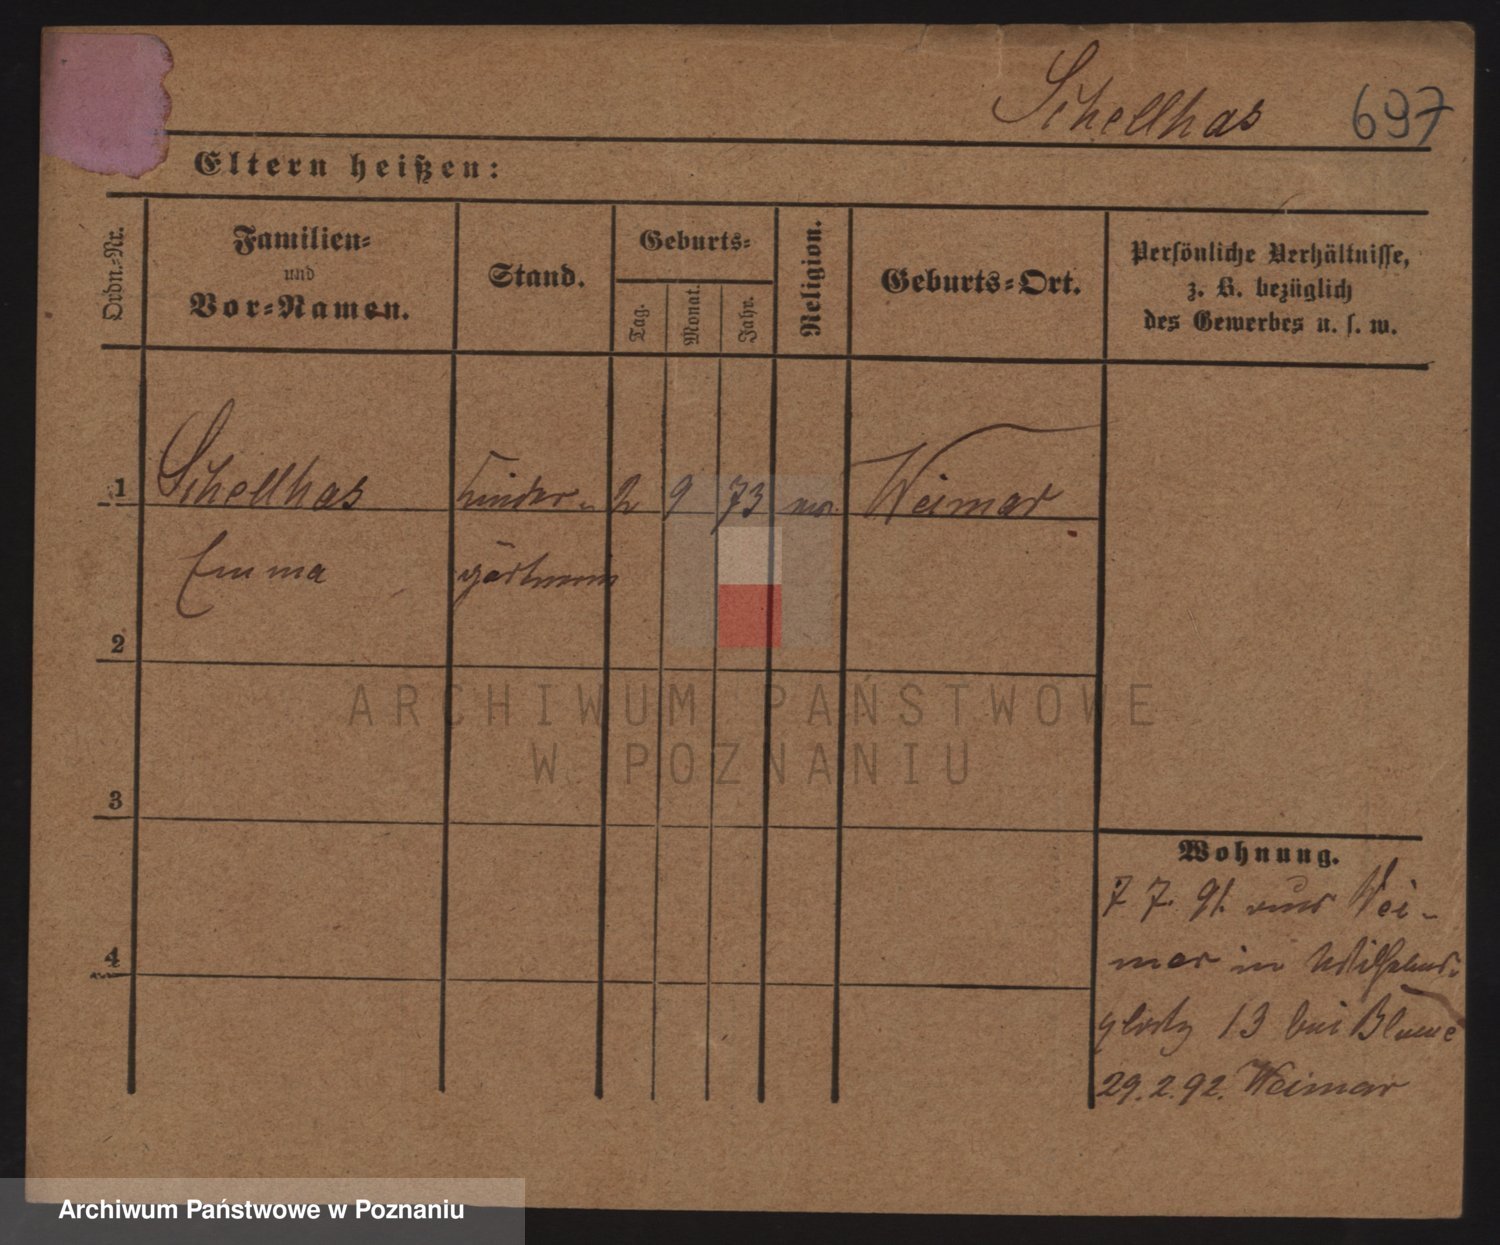 Schellhas 697
Eltern heißen:
Ordn.-Nr.
Familien-
und
Vor-Namen.
Stand.
Geburts-
Tag.
Monat.
Jahr.
Religion.
Geburts-Ort.
Persönliche Verhältnisse,
z. B. bezüglich
des Gewerbes u. s. w.
1 Schellhas Kinder- 2 9 73 Weimar
Emma gärtnerin
2
3
4
Wohnung.
7 7. 91. aus Wei-
mar in Wilhelms-
platz 13 bei Blume
29.2.92. Weimar
ARCHIWUM PAŃSTWOWE
W POZNANIU
Archiwum Państwowe w Poznaniu